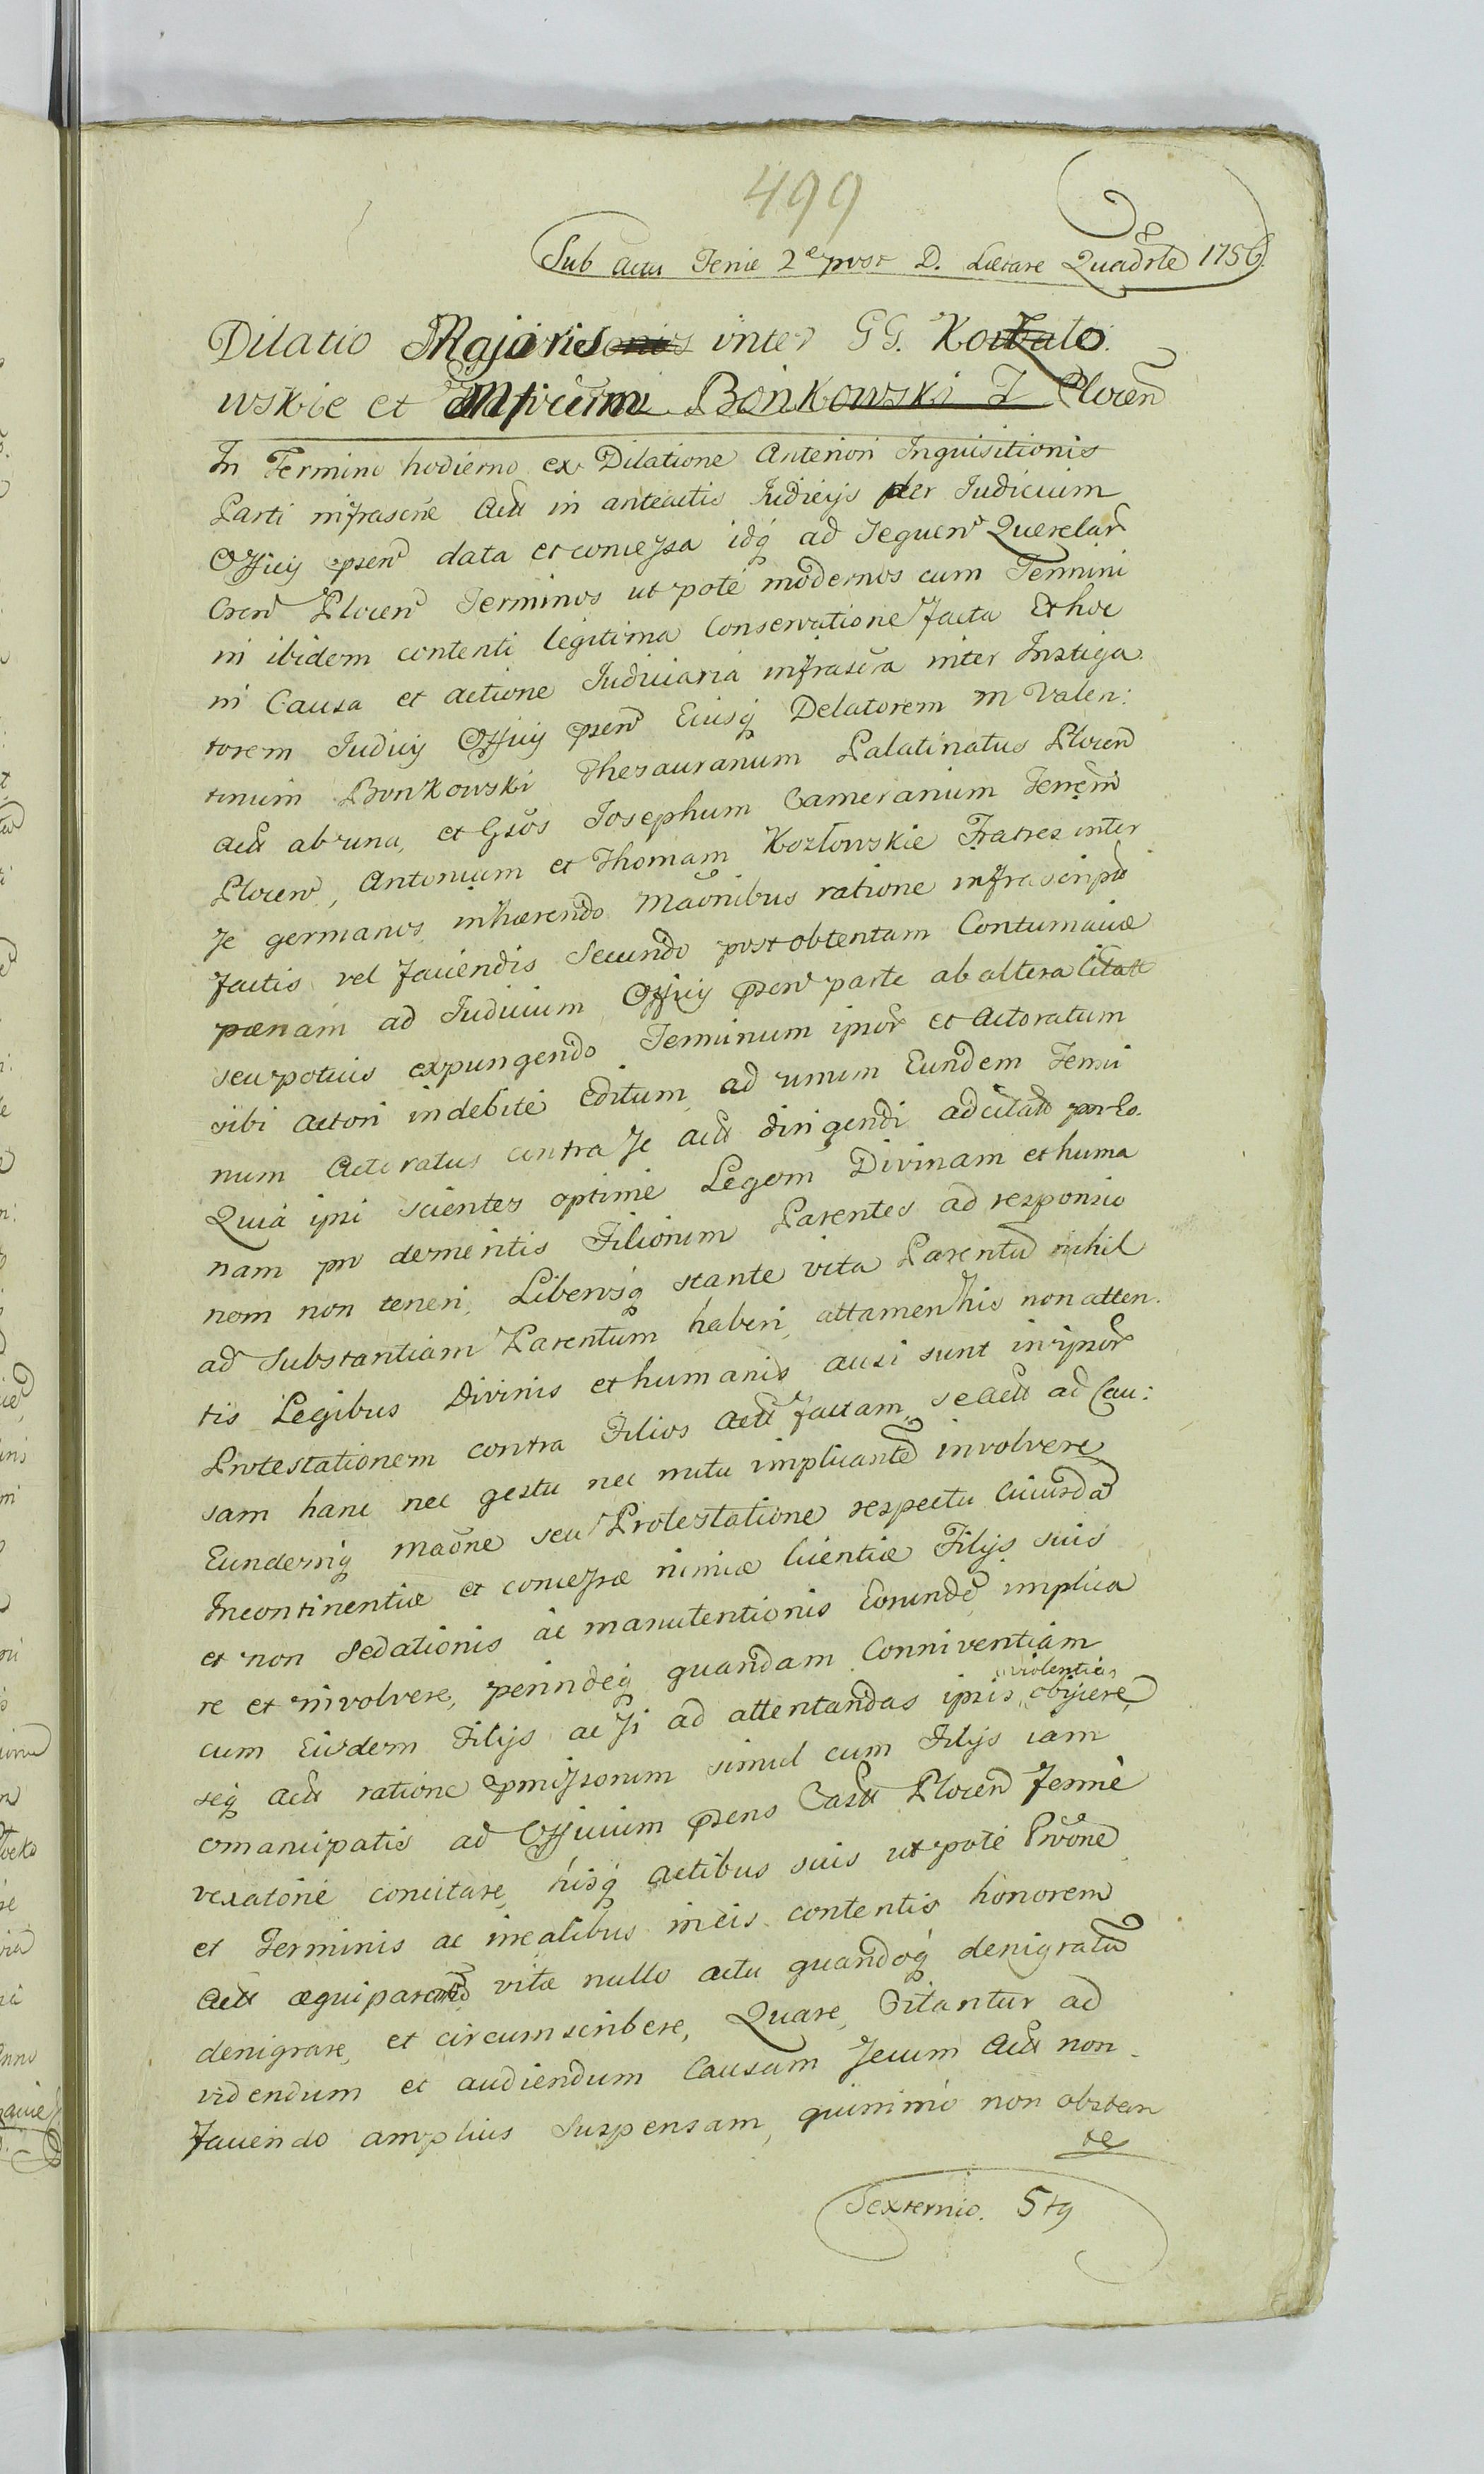 499
Sub actu Feriæ 2æ post D. Lætare Quadrle 1756.
Dilatio Majoris inter GG. Kozlo.
wskie et Bonkowski T Plocen
In Termino hodierno ex Dilatione Anteriori Inquisitionis
Parti infrascrẽ Actt in anteactis Iudicijs per Iudicium
Officij præn data et concessa idq ad sequen Querelar
Cren Plocen Terminos ut poté modernos cum Termini
in ibidem contenti legitima Conservatione facta Et hoc
in Causa et actione Iudiciaria infrascra inter Instiga.
torem Iudicij Officij præn Eiusq Delatorem M Valen:
tinum Bonkowski Thesaurarium Palatinatus Plocen
actt ab una, et Gsos Iosephum Camerarium Terrem
Plocen, Antonium et Thomam Kozłowskie Fratres inter
se germanos inhærendo Maonibus ratione infrascripto
factis vel faciendis Secundo post obtentam Contumaciæ
pænam ad Iudicium Officij præn parte ab altera Citatt
seu potuis expungendo Terminum ipsor et Actoratum
sibi actori indebité Editum ad unum Eundem Termi
num Actoratus contra se actt dirigendi adcitatt pr Eo.
Quia ipsi scientes optimé Legem Divinam et huma
nam pro demeritis Filiorum Parentes ad responsio
nem non teneri, Liberosq stante vita Parentu nihil
ad Substantiam Parentum haberi, attamen his non atten.
tis Legibus Divinis et humanis ausi sunt in ipsor
Protestationem contra Filios Actt factam, se actt ad Cau:
sam hanc nec gestu nec nutu implicante involvere
Eundemq maone seu Protestatione respectu Cuiusda
Incontinentiæ et concessæ nimiæ licentiæ Filijs suis
et non Sedationis ac manutentionis Eorunde implica
re et involvere, perindeq quandam Conniventiam
cum Eisdem Filijs ac si ad attentandas ipsis violentias obijcere,
seq actt ratione præmissorum simul cum Filijs iam
emancipatis ad Officium præns Castr Plocen Termé
vexatorié concitare, hisq actibus suis ut poté Prõone
et Terminis ac irealibus in eis contentis honorem
Actt æquiparand vitæ nullo actu quandoq denigratu
denigrare, et circumscribere, Quare, Citantur ad
videndum et audiendum Causam secum actt non
faciendo amplius Suspensam, quinimó non obstan
te
Sexternio. 5tq